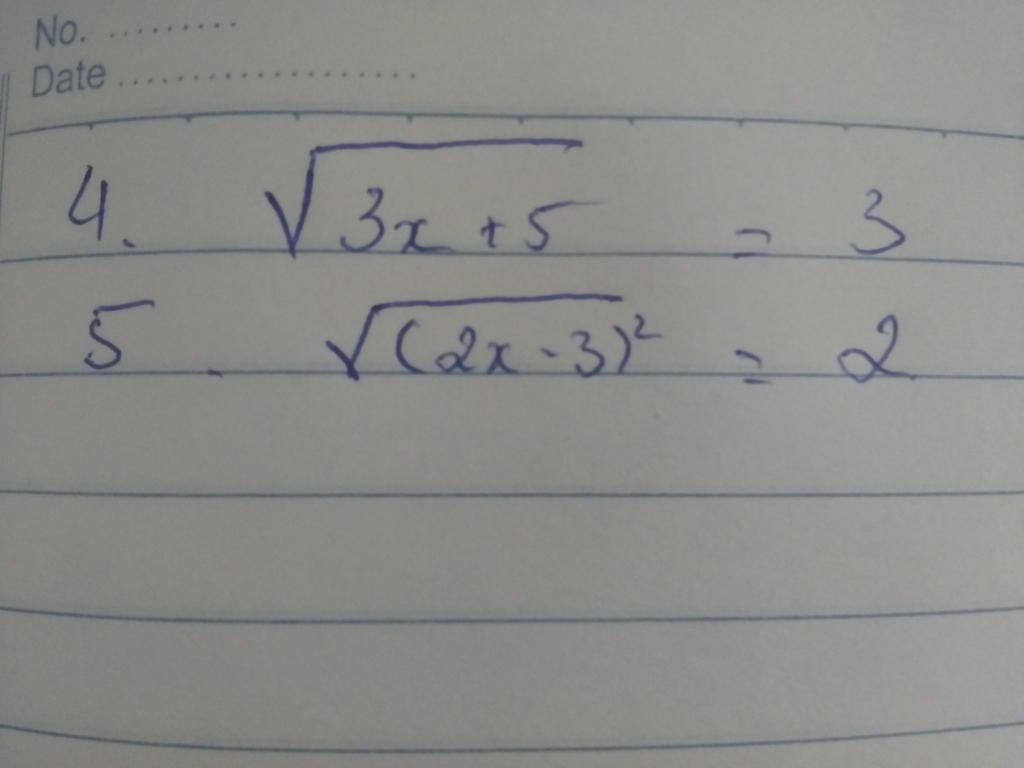 No. .........
Date ...................
4. √(3x + 5) = 3
5. √(2x - 3)² = 2